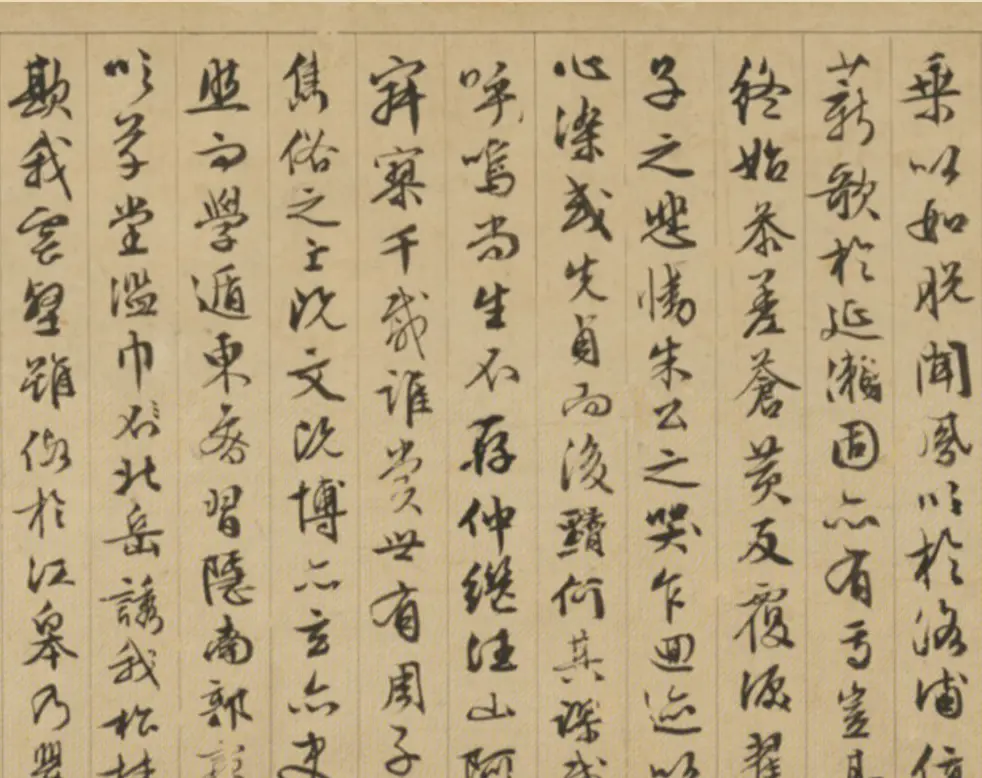 乗其如脱聞鳳吹於洛浦值
薪歌於延瀨固亦有焉豈期
終始叅差蒼黃反覆淚翟
子之悲慟朱公之哭乍迴迹以
心染或先貞而後黷何其謬哉
呼嗚尚生不存仲継往山阿
寂寥千載誰賞世有周子
雋俗之士既文既博亦玄亦史
然而學遁東魯習隱南郭竊
吹草堂濫巾北岳誘我松桂
欺我雲壑雖假於江皋乃